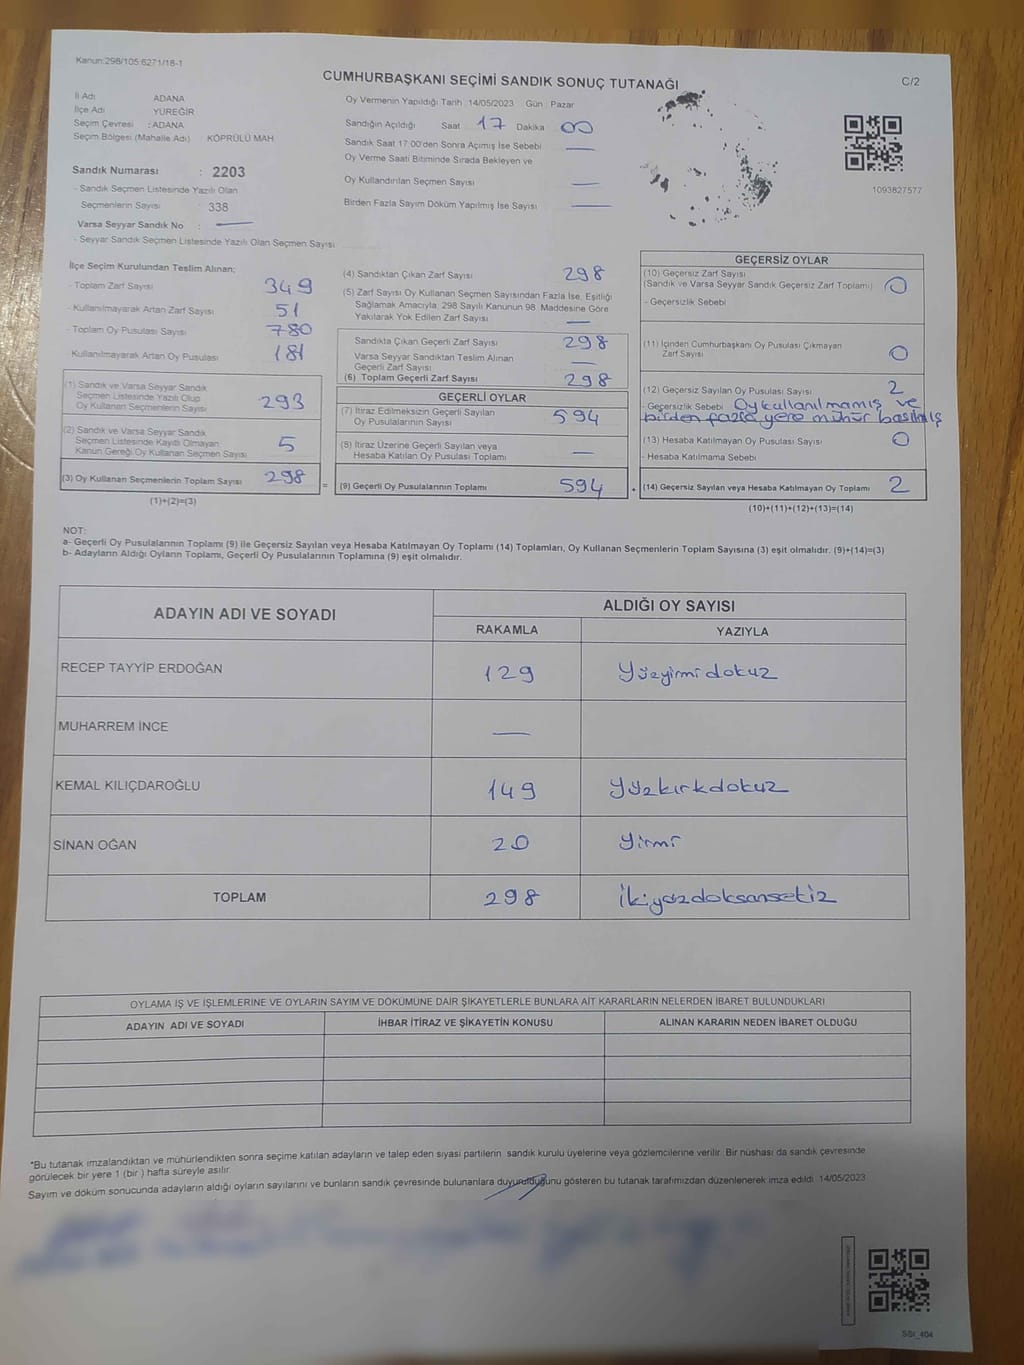 Kanun:298/105:6271/18-1
CUMHURBAŞKANI SEÇİMİ SANDIK SONUÇ TUTANAĞI
C/2
İl Adı ADANA
İlçe Adı YÜREĞİR
Seçim Çevresi : ADANA
Seçim Bölgesi (Mahalle Adı) KÖPRÜLÜ MAH.
Sandık Numarası : 2203
- Sandık Seçmen Listesinde Yazılı Olan
Seçmenlerin Sayısı : 338
Varsa Seyyar Sandık No : —
- Seyyar Sandık Seçmen Listesinde Yazılı Olan Seçmen Sayısı
Oy Vermenin Yapıldığı Tarih :14/05/2023 Gün : Pazar
Sandığın Açıldığı Saat : 17 Dakika : 00
Sandık Saat 17:00'den Sonra Açımış İse Sebebi —
Oy Verme Saati Bitiminde Sırada Bekleyen ve
Oy Kullandırılan Seçmen Sayısı —
Birden Fazla Sayım Döküm Yapılmış İse Sayısı —
1093827577
İlçe Seçim Kurulundan Teslim Alınan;
- Toplam Zarf Sayısı 349
- Kullanılmayarak Artan Zarf Sayısı 51
- Toplam Oy Pusulası Sayısı 780
Kullanılmayarak Artan Oy Pusulası 181
(1) Sandık ve Varsa Seyyar Sandık
Seçmen Listesinde Yazılı Olup
Oy Kullanan Seçmenlerin Sayısı 293
(2) Sandık ve Varsa Seyyar Sandık
Seçmen Listesinde Kayıtlı Olmayan
Kanun Gereği Oy Kullanan Seçmen Sayısı 5
(3) Oy Kullanan Seçmenlerin Toplam Sayısı 298
(1)+(2)=(3)
=
(4) Sandıktan Çıkan Zarf Sayısı 298
(5) Zarf Sayısı Oy Kullanan Seçmen Sayısından Fazla İse, Eşitliği
Sağlamak Amacıyla, 298 Sayılı Kanunun 98. Maddesine Göre
Yakılarak Yok Edilen Zarf Sayısı —
Sandıkta Çıkan Geçerli Zarf Sayısı 298
Varsa Seyyar Sandıktan Teslim Alınan
Geçerli Zarf Sayısı —
(6) Toplam Geçerli Zarf Sayısı 298
GEÇERLİ OYLAR
(7) İtiraz Edilmeksizin Geçerli Sayılan
Oy Pusulalarının Sayısı 594
(8) İtiraz Üzerine Geçerli Sayılan veya
Hesaba Katılan Oy Pusulası Toplamı —
(9) Geçerli Oy Pusulalarının Toplamı 594
GEÇERSİZ OYLAR
(10) Geçersiz Zarf Sayısı
(Sandık ve Varsa Seyyar Sandık Geçersiz Zarf Toplamı) 0
- Geçersizlik Sebebi
(11) İçinden Cumhurbaşkanı Oy Pusulası Çıkmayan
Zarf Sayısı 0
(12) Geçersiz Sayılan Oy Pusulası Sayısı 2
- Geçersizlik Sebebi Oy kullanılmamış ve
birden fazla yere mühür basılmış
(13) Hesaba Katılmayan Oy Pusulası Sayısı 0
- Hesaba Katılmama Sebebi
(14) Geçersiz Sayılan veya Hesaba Katılmayan Oy Toplamı 2
(10)+(11)+(12)+(13)=(14)
NOT:
a- Geçerli Oy Pusulalarının Toplamı (9) ile Geçersiz Sayılan veya Hesaba Katılmayan Oy Toplamı (14) Toplamları, Oy Kullanan Seçmenlerin Toplam Sayısına (3) eşit olmalıdır. (9)+(14)=(3)
b- Adayların Aldığı Oyların Toplamı, Geçerli Oy Pusulalarının Toplamına (9) eşit olmalıdır.
ADAYIN ADI VE SOYADI ALDIĞI OY SAYISI
RAKAMLA YAZIYLA
RECEP TAYYİP ERDOĞAN 129 Yüzyirmidokuz
MUHARREM İNCE —
KEMAL KILIÇDAROĞLU 149 Yüzkırkdokuz
SİNAN OĞAN 20 Yirmi
TOPLAM 298 ikiyüzdoksansekiz
OYLAMA İŞ VE İŞLEMLERİNE VE OYLARIN SAYIM VE DÖKÜMÜNE DAİR ŞİKAYETLERLE BUNLARA AİT KARARLARIN NELERDEN İBARET BULUNDUKLARI
ADAYIN ADI VE SOYADI İHBAR İTİRAZ VE ŞİKAYETİN KONUSU ALINAN KARARIN NEDEN İBARET OLDUĞU
*Bu tutanak imzalandıktan ve mühürlendikten sonra seçime katılan adayların ve talep eden siyasi partilerin sandık kurulu üyelerine veya gözlemcilerine verilir. Bir nüshası da sandık çevresinde
görülecek bir yere 1 (bir ) hafta süreyle asılır.
Sayım ve döküm sonucunda adayların aldığı oyların sayılarını ve bunların sandık çevresinde bulunanlara duyurulduğunu gösteren bu tutanak tarafımızdan düzenlenerek imza edildi. 14/05/2023
SSt_404